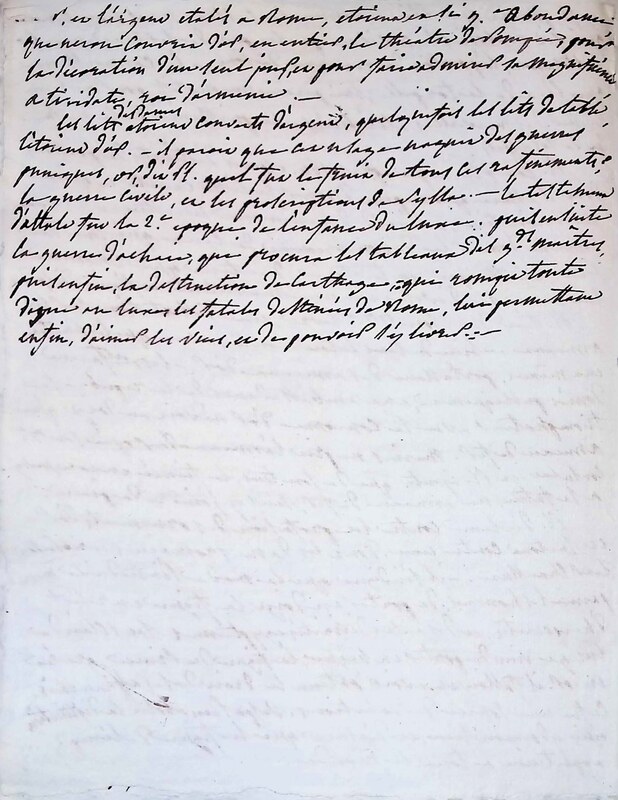 d. en l'argent etalés a Rome, etoient en si gde abondance
que neron couvrit d'or, en entier, le théâtre de Pompée, pour
la décoration d'un seul jour, et pour faire admirer sa magnificence
a tiridate, roi d'armenie. —
les lits des dames etoient couverts d'argent, quelquefois les lits de table
l'étoient d'or. — il paroit que cet usage naquit des guerres
puniques, or, dit Pl. quel fut le fruit de tous ces rafinements,
la guerre civile, et les proscriptions de Sylla. — le testament
d'attale fut la 2e. epoque de l'enfance du luxe. puis ensuite
la guerre d'achaïe, qui procura les tableaux des gds maîtres,
puis enfin, la destruction de Carthage, qui rompit toute
digue au luxe les fatales destinées de Rome, lui permettant
enfin, d'aimer les vices, et de pouvoir s'y livrer. —